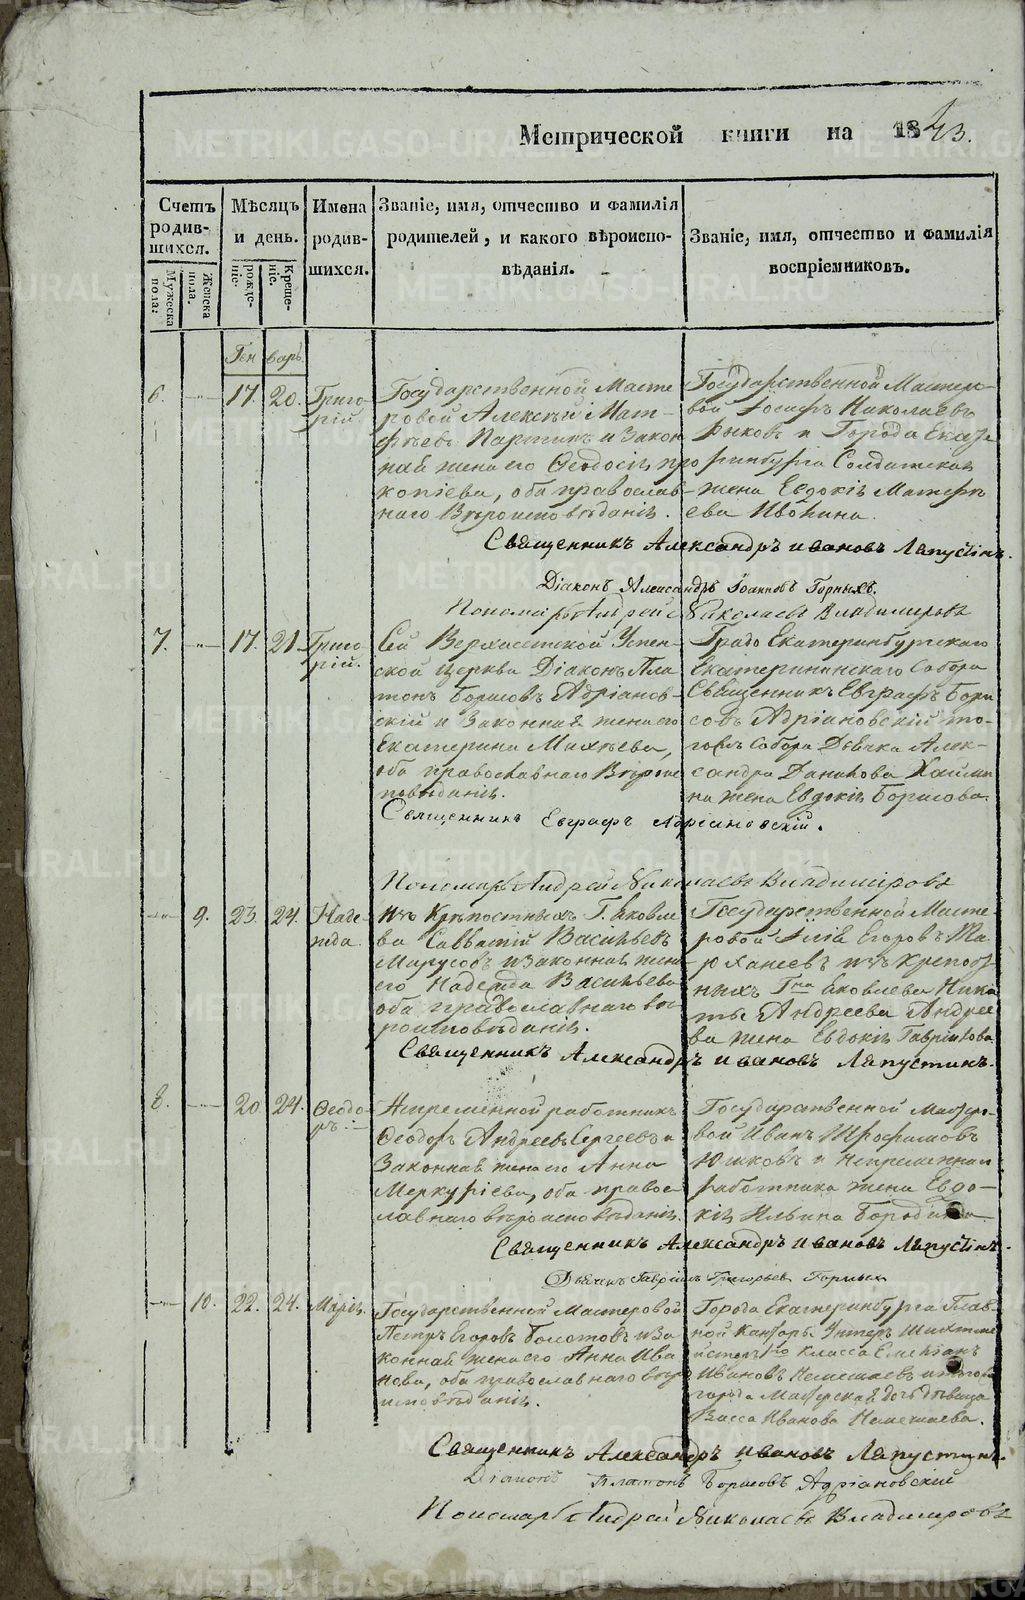 Метрической книги на 1843.
Счетъ родив-шихся.
Мужеска пола.
Женска пола.
Мѣсяцъ и день.
рожде-ніе.
Креще-ніе.
Имена родив-шихся.
Званіе, имя, отчество и фамилія
родителей, и какого вѣроиспо-
вѣданія.
Званіе, имя, отчество и фамилія
воспріемниковъ.
Генварь
6.
17. 20.
Григо-
рій
Государственной Масте
ровой Алексѣй Мат-
фѣевъ Паршин и Закон
ная жена его Ѳеодосія про
копіева, оба православ-
наго Вѣроисповѣданія.
Государственной Мастеро-
вой Іосифъ Николаевъ
Рыковъ и Города Екате
ринбурга Солдатская
жена Евдокія Матфѣ
ева Ивонина.
Священникъ Александръ Ивановъ Ляпустинъ.
Діаконъ Александръ Іоанновъ Горныхъ.
Пономарь Андрей Николаевъ Владимировъ
7.
17. 21.
Григо-
рій.
Сей Верхисетской Успен-
ской церкви Діаконъ Пла
тонъ Борисовъ Адріанов-
скій и Законная жена его
Екатерина Михѣева,
оба православнаго Вѣроис
повѣданія.
Градо Екатеринбургскаго
Екатерининскаго Собора
Священникъ Евграфъ Бори
совъ Адріановскій то-
гожъ Собора Дьячка Алек-
сандра Данилова
на жена Евдокія Борисова.
Священникъ Евграфъ Адріановскій.
Пономарь Андрей Николаевъ Владиміровъ
9.
23. 24.
Наде-
жда.
Изъ Крѣпостныхъ Г. Яковле
ва Савватій Васильевъ
Марусовъ и Законная жена
его Надежда Васильева
оба православнаго вѣ
роисповѣданія.
Государственной Масте-
ровой Илія Егоровъ Та
рханеевъ изъ крепост
ныхъ Гна Яковлева Ники
ты Андреева Андрее
ва жена Евдокія Гаврилова
Священникъ Александръ Ивановъ Ляпустинъ.
8.
20. 24.
Ѳеодо-
ръ.
Непременной работникъ
Ѳеодоръ Андреевъ Сергеевъ и
Законная жена его Анна
Меркуріева, оба правос
лавнаго вѣроисповѣданія.
Государственной Мастеро-
вой Иванъ Трофимовъ
Юшковъ и Непременнаго
работника жена Евдо-
кія Ильина Бородина
Священникъ Александръ Ивановъ Ляпустинъ.
Дьячекъ Гавріилъ Григорьевъ Горныхъ
10.
22. 24.
Марія.
Государственной Мастеровой
Петръ Егоровъ Болотовъ и За
конная жена его Анна Ива
нова, оба православнаго вѣро
исповѣданія.
Города Екатеринбурга Глав
ной Канторы Унтеръ Шихтме
йстеръ 1го класса Емельянъ
Ивановъ Немешаевъ и того
города Мастерская дочь девица
Васса Иванова Немешаева.
Священникъ Александръ Ивановъ Ляпустинъ.
Діаконъ Платонъ Борисовъ Адріановскій
Пономарь Андрей Николаевъ Владимировъ
METRIKI.GASO-URAL.RU